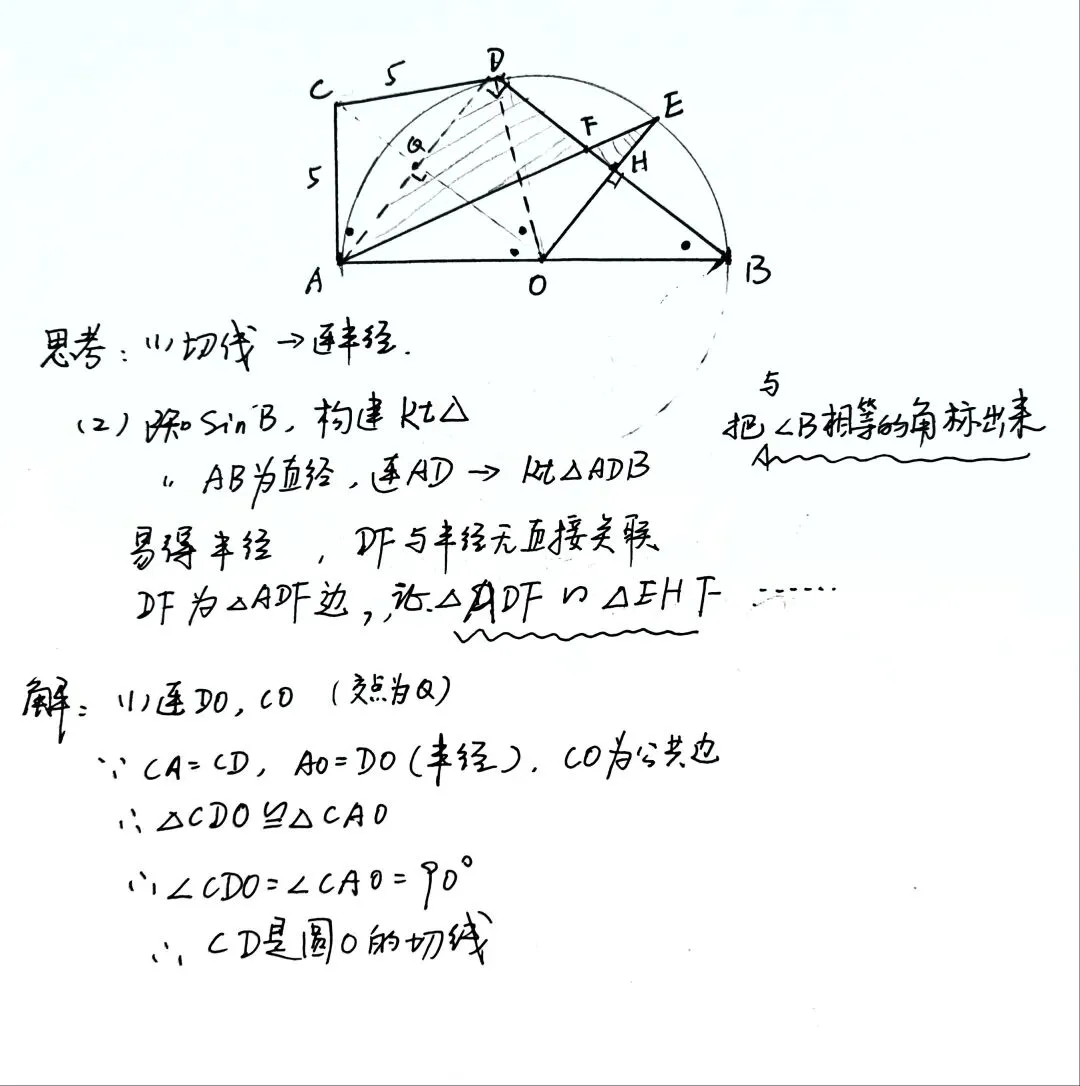 C 5 D E
F
Q H
5
A O B
思考: (1) 切线 → 连半径.
(2) 求 sinB, 构建 Rt△
与
把∠B相等的角标出来
" AB为直径, 连AD → Rt△ADB
易得半径 , DF与半径无直接关联
DF为△ADF边, 证△ADF∽△EHF ……
解: (1) 连DO, CO (交点为Q)
∵ CA=CD, AO=DO(半径). CO为公共边
∴ △CDO≌△CAO
∴ ∠CDO=∠CAO=90°
∴ CD是圆O的切线